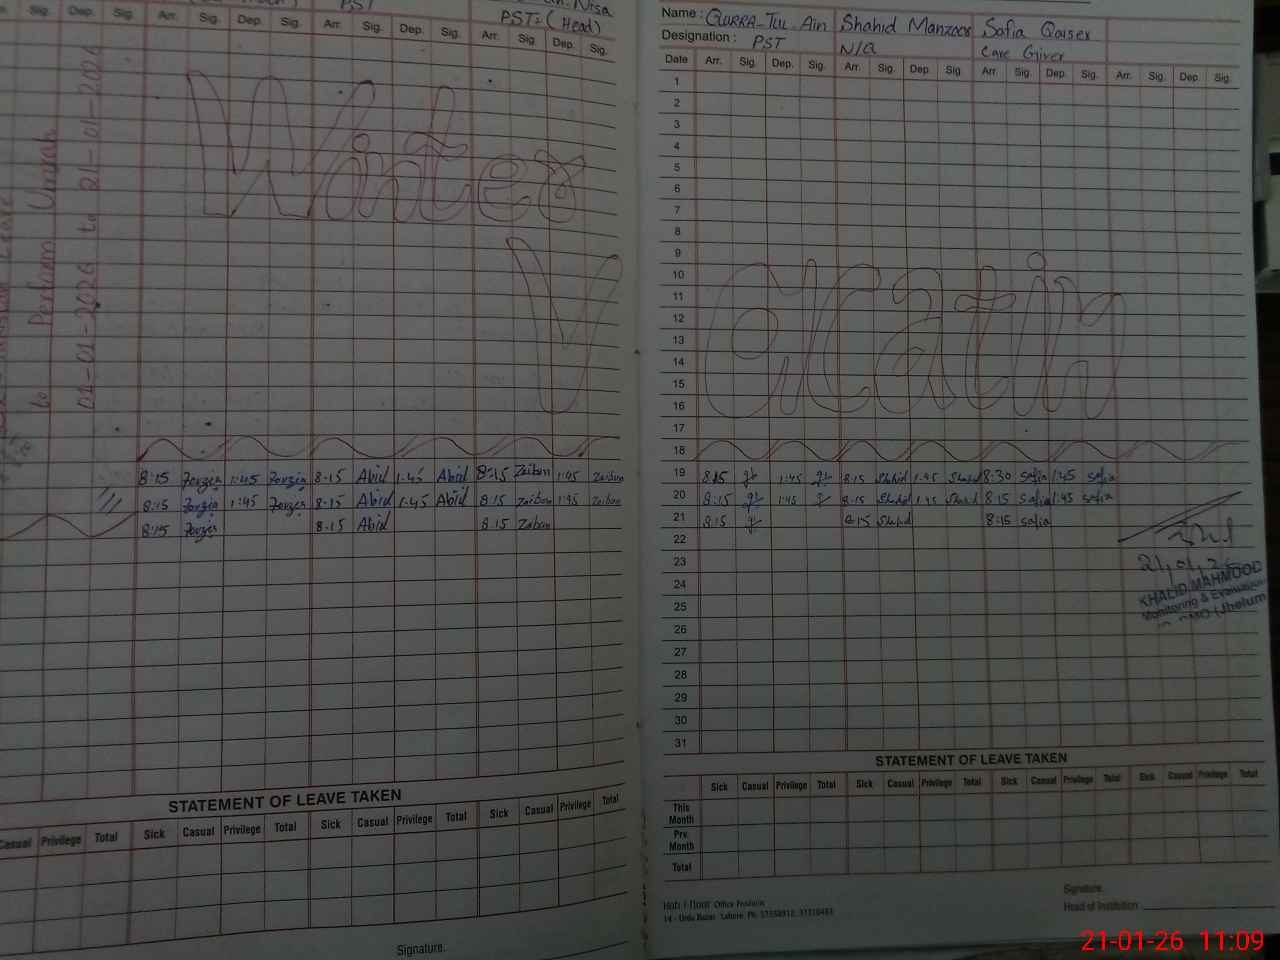 PST
PST = (Head)
Arr. Sig. Dep. Sig. Arr. Sig. Dep. Sig. Arr. Sig. Dep. Sig.
to Perform Umrah
01-01-2026 to 21-01-2026
Winter
V
8:15 Fozzia 1:45 Fozzia 8-15 Abid 1-45 Abid 8:15 Zaiban 1:45 Zaiban
8:15 Fozzia 1:45 Fozzia 8-15 Abid 1-45 Abid 8:15 Zaiban 1:45 Zaiban
8:15 Fozzia 8-15 Abid 8:15 Zaiban
STATEMENT OF LEAVE TAKEN
Casual Privilege Total Sick Casual Privilege Total Sick Casual Privilege Total Sick Casual Privilege Total
Signature.
Name : QURRA-TUL-Ain Shahid Manzoor Safia Qaiser
Designation : PST N/Q Care Giver
Date Arr. Sig. Dep. Sig. Arr. Sig. Dep. Sig. Arr. Sig. Dep. Sig. Arr. Sig. Dep. Sig.
1
2
3
4
5
6
7
8
9
10
11
12
13
14
15
16
17
18
acation
19 8:15 1:45 8:15 Shahid 1:45 Shahid 8:30 Safia 1:45 Safia
20 8:15 1:45 8:15 Shahid 1:45 Shahid 8:15 Safia 1:45 Safia
21 8:15 8:15 Shahid 8:15 Safia
22
23
24
25
26
27
28
29
30
31
21,01,26
KHALID MAHMOOD
Monitoring & Evaluation
(Jhelum
STATEMENT OF LEAVE TAKEN
Sick Casual Privilege Total Sick Casual Privilege Total Sick Casual Privilege Total Sick Casual Privilege Total
This Month
Prv. Month
Total
Office Products
14 - Urdu Bazar Lahore. Ph.
Signature.
Head of Institution
21-01-26 11:09